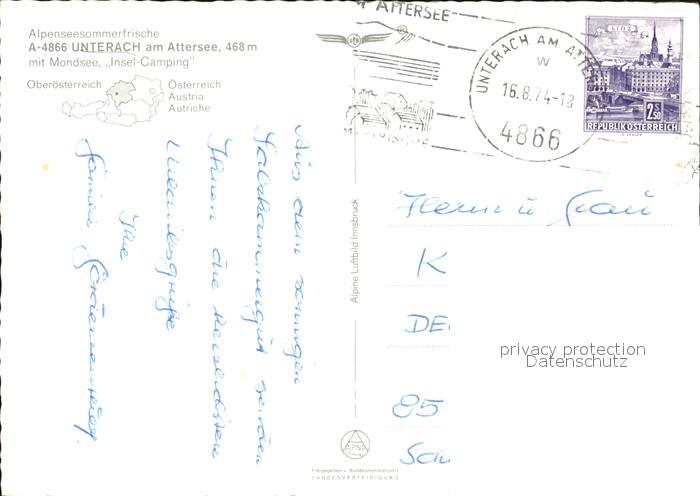 Alpenseesommerfrische
A-4866 UNTERACH am Attersee, 468 m
mit Mondsee, „Insel-Camping"
Oberösterreich
Österreich
Austria
Autriche
Aus dem sonnigen
Salzkammergut senden
Ihnen die herzlichsten
Urlaubsgrüße
Ihre
Familie
Alpine Luftbild Innsbruck
ATTERSEE
UNTERACH AM ATTERSEE
W
16.8.74-18
4866
LINZ
2.50
REPUBLIK ÖSTERREICH
Herrn u Frau
K
DE
85
privacy protection
Datenschutz
ALPINE
Freigegeben v. Bundesministerium f.
LANDESVERTEIDIGUNG